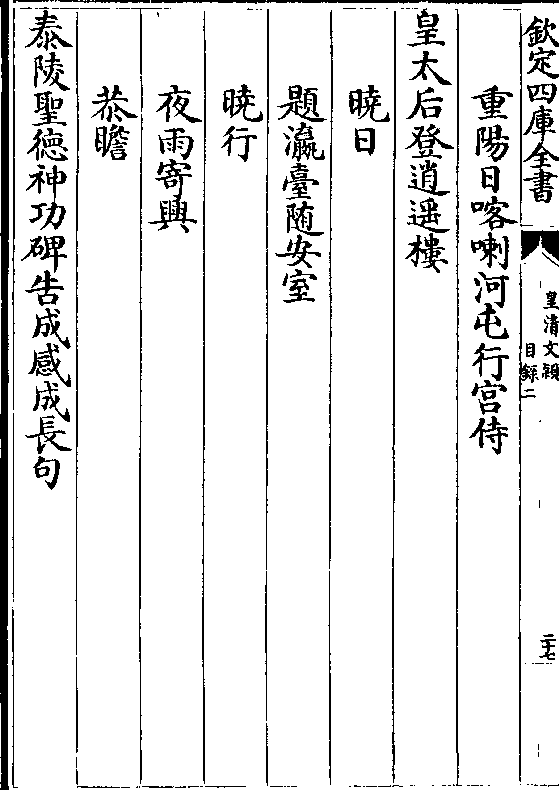 欽定四庫全書
皇清文穎
目録二
二十七
重陽日喀喇河屯行宫侍
皇太后登逍遥樓
曉日
題瀛臺随安室
曉行
夜雨寄興
恭瞻
泰陵聖徳神功碑告成感成長句